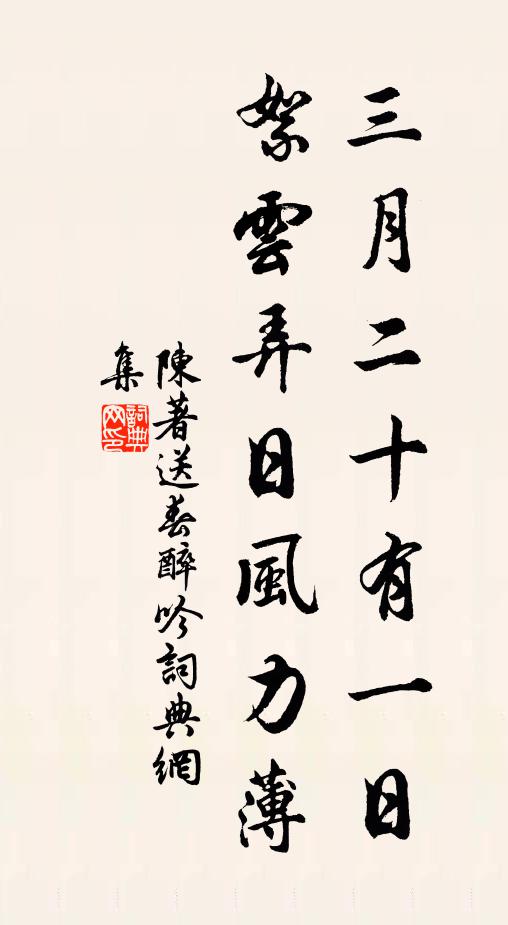 三月二十有一日
絮雲弄日風力薄
陳著送春醉吟詞典網
集
詞典
网印